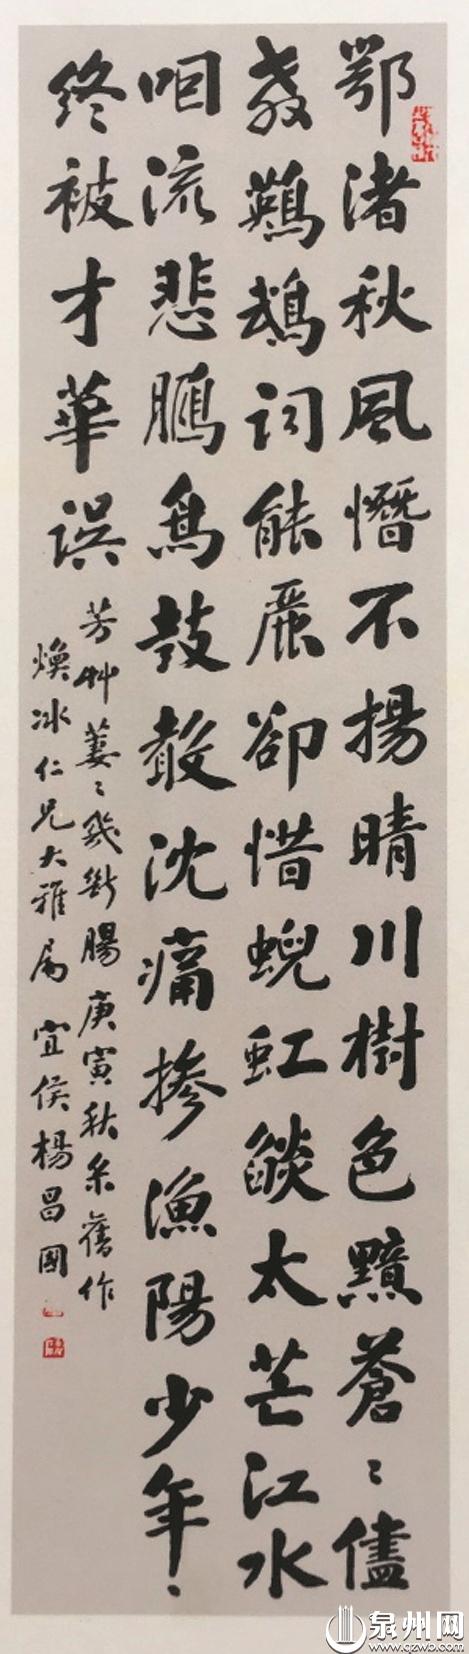 鄂渚秋風惛不揚晴川樹色黯蒼〻儘
教鸚鵡詞能麗卻惜蜺虹燄太芒江水
咽流悲鵩鳥鼓聲沈痛摻漁陽少年〻
終被才華誤
芳艸萋〻幾斷腸庚寅秋余舊作
煥冰仁兄大雅屬 宜侯楊昌國
泉州网
www.qzwb.com